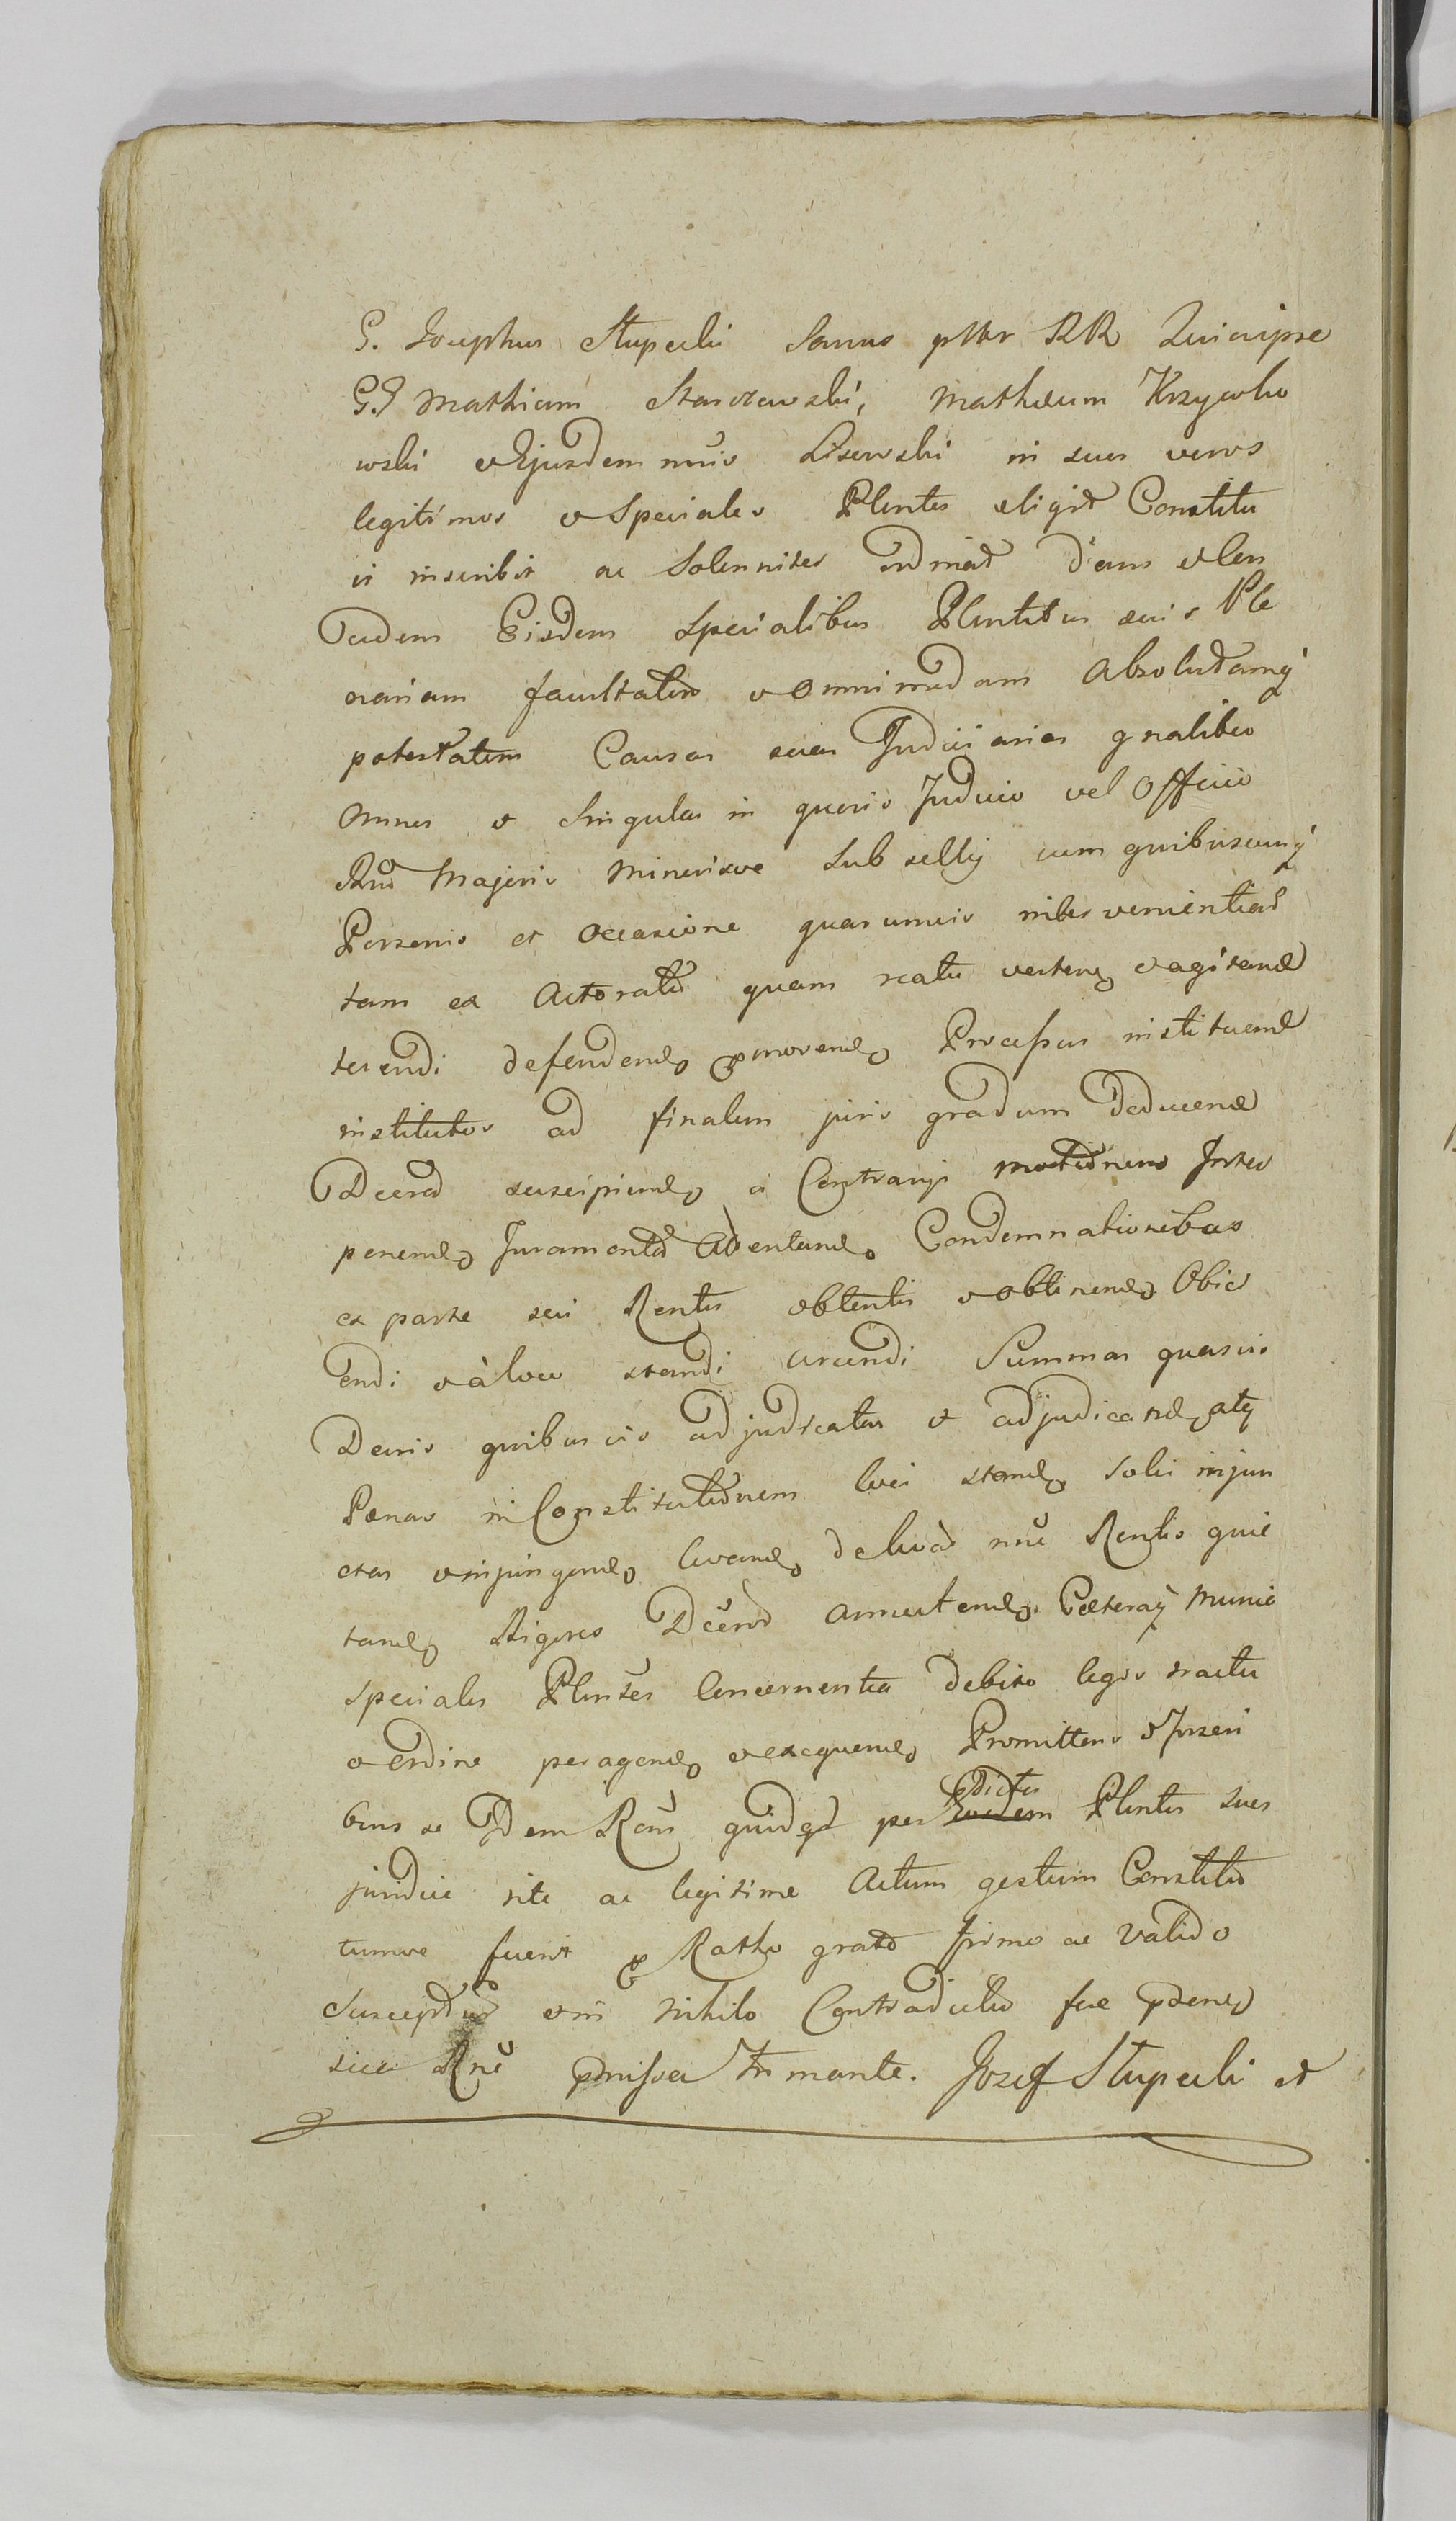 G. Josephus Stupecki Sanus pttr RR Quia ipse
G.G Mathiam Starozewski, Matheum Krzyczko
wski et Ejusdem nnis Lisewski in suos veros
legitimos et Speciales Plentes eligit Constitu
it inscribit ac Solenniter ordinat dans et Con
Eisdem Specialibus Plentibus suis Ple
nariam facultatem et omnimodam Absolutamq
potestatem Causas suas Judiciarias gnaliter
Omnes et Singulas in quovis Judicio vel Officio
Rni Majoris Minorisve Subsellij cum quibuscunq
Personis et Occasione quarumvis intervenientiar
tam ex Actoratu quam reatu verten et agitand
tuendi defendend promovend Processus instituend
institutos ad finalem juris gradum Deducend
Decret suscipiend a Contrarijs motionem Inter
ponend Juramenta Condemnationibus
ex parte sui Rentis obtentis et obtinend Obici
endi et a loco standi arcendi Summas quasvis
Decris quibusvis adjudicatas et adjudicand atq
Pænas in Constitutionem loci stand Solvi injun
ctas et injungend levand de levat nne Rentis quie
tand Rigores Decret Cæteraq Munia
Speciales Plentes Concernentia debito legis tractu
et ordine peragend et exequend Promittens et Inscri
bens se Idem Rens quidqd per eosdem pdictos Plentes suos
juridice rite ac legitime Actum gestum Constitu
tumve fuerit pro Ratho grato firmo ac valido
Suscepturum et in nihilo Contradictu fre pdene
sua Rne pmissa Firmante. Jozef Stupecki et